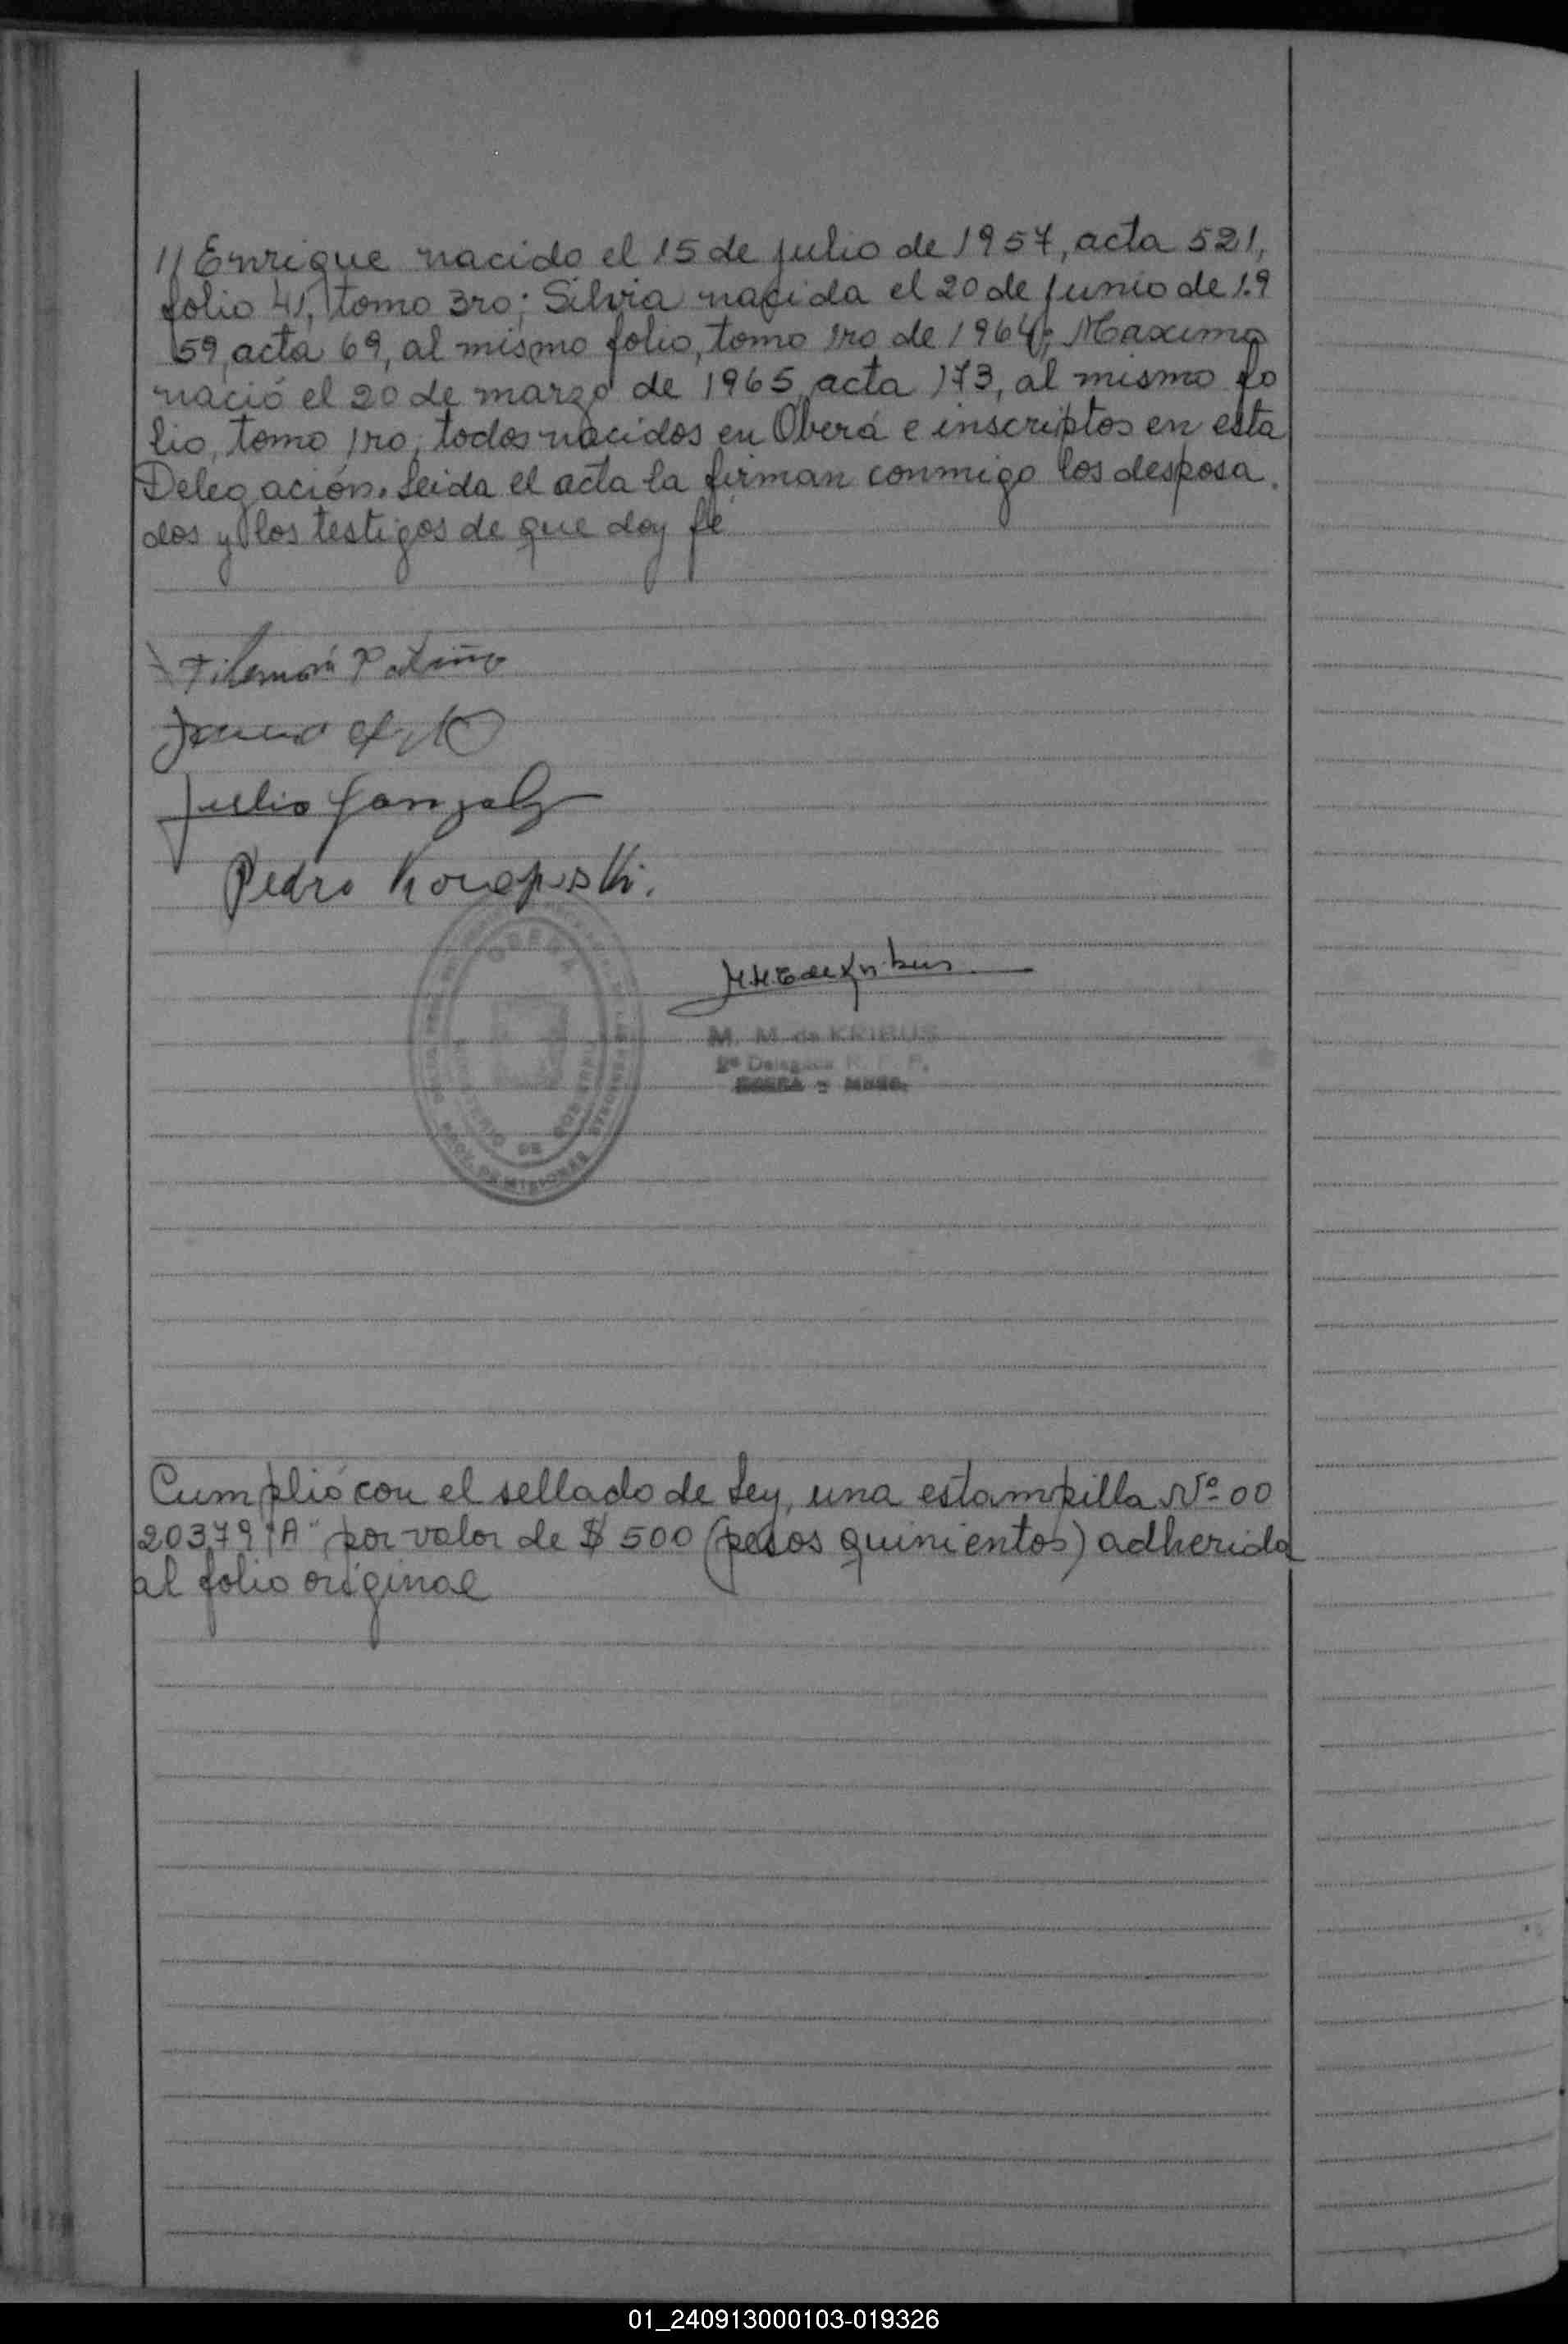 // Enrique nacido el 15 de julio de 1957, acta 521,
folio 41, tomo 3ro; Silvia nacida el 20 de junio de 1.9
59, acta 69, al mismo folio, tomo 1ro de 1964; Maximo
nació el 20 de marzo de 1965, acta 173, al mismo fo
lio, tomo 1ro, todos nacidos en Oberá e inscriptos en esta
Delegación. Leida el acta la firman conmigo los desposa.
dos y los testigos de que doy fe
Filemón Patiño
Julio Gonzalez
Pedro
OBERA
MINISTERIO DE GOBIERNO
PROV. DE MISIONES
M. M. de KRIBUS
2ª Delegada R. P. P.
Cumplió con el sellado de Ley, una estampilla Nº 00
20379 "A" por valor de $ 500 (pesos quinientos) adherida
al folio original
01_240913000103-019326